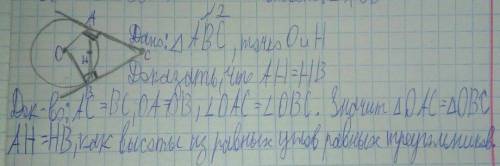 №2
A
O
H
C
B
Дано: △ABC, точки O и H
Доказать, что AH=HB
Док-во: AC=BC, OA=OB, ∠OAC=∠OBC. Значит △OAC=△OBC
AH=HB, как высоты из равных углов равных треугольников.